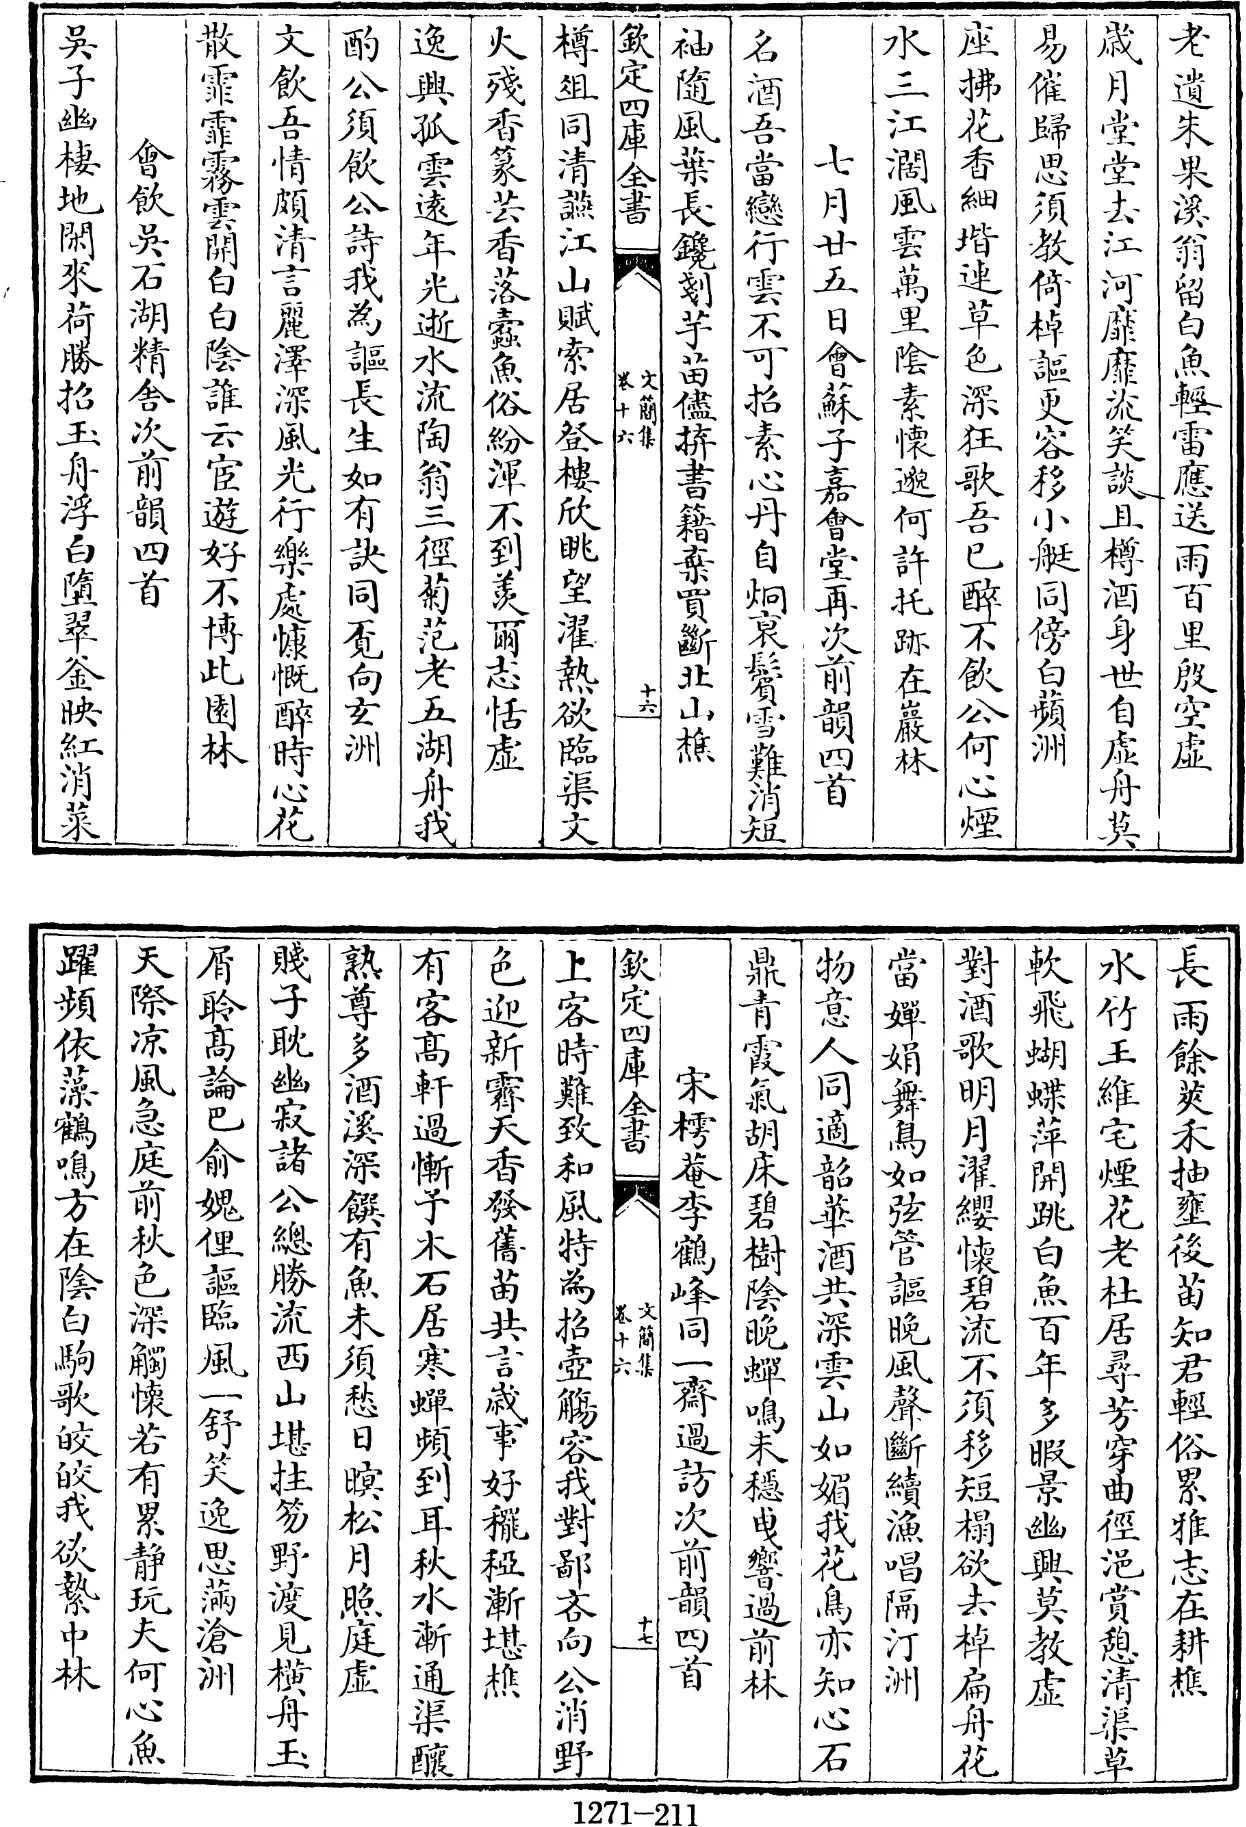 老遺朱果溪翁留白魚輕雷應送雨百里殷空虛
歳月堂堂去江河靡靡流笑談且樽酒身世自虛舟莫
易催歸思須教倚棹謳更容移小艇同傍白蘋洲
座拂花香細堦連草色深狂歌吾已醉不飲公何心煙
水三江濶風雲萬里陰素懷邈何許托跡在巖林
七月廿五日會蘇子嘉會堂再次前韻四首
名酒吾當戀行雲不可招素心丹自炯哀鬢雪難消短
袖隨風葉長鑱剗芋苗儘拚書籍棄買斷北山樵
欽定四庫全書
文簡集
卷十六
十六
樽俎同清讌江山賦索居登樓欣眺望濯熱欲臨渠文
火殘香篆芸香落蠹魚俗紛渾不到羨爾志恬虛
逸興孤雲遠年光逝水流陶翁三徑菊范老五湖舟我
酌公須飲公詩我為謳長生如有訣同覔向玄洲
文飲吾情頗清言麗澤深風光行樂處慷慨醉時心花
散霏霏霧雲開白白陰誰云宦遊好不博此園林
會飲吳石湖精舎次前韻四首
吳子幽棲地閑來荷勝招玉舟浮白墮翠釡映紅消菜
長雨餘莢禾抽壅後苗知君輕俗累雅志在耕樵
水竹王維宅煙花老杜居尋芳穿曲徑浥賞憩清渠草
軟飛蝴蝶萍開跳白魚百年多暇景幽興莫教虛
對酒歌明月濯纓懷碧流不須移短榻欲去棹扁舟花
當嬋娟舞鳥如弦管謳晚風聲斷續漁唱隔汀洲
物意人同適韶華酒共深雲山如媚我花鳥亦知心石
鼎青霞氣胡床碧樹陰晚蟬鳴未穩曵響過前林
宋樗菴李鶴峰同一齋過訪次前韻四首
欽定四庫全書
文簡集
卷十六
十七
上客時難致和風特為招壺觴容我對鄙吝向公消野
色迎新霽天香發舊苗共言歳事好䆉稏漸堪樵
有客髙軒過慚予木石居寒蟬頻到耳秋水漸通渠釀
熟尊多酒溪深饌有魚未須愁日暝松月照庭虛
賤子耽幽寂諸公總勝流西山堪拄笏野渡見橫舟玉
屑聆髙論巴俞媿俚謳臨風一舒笑逸思滿滄洲
天際凉風急庭前秋色深觸懷若有累静玩夫何心魚
躍頻依藻鶴鳴方在陰白駒歌皎皎我欲縶中林
1271-211